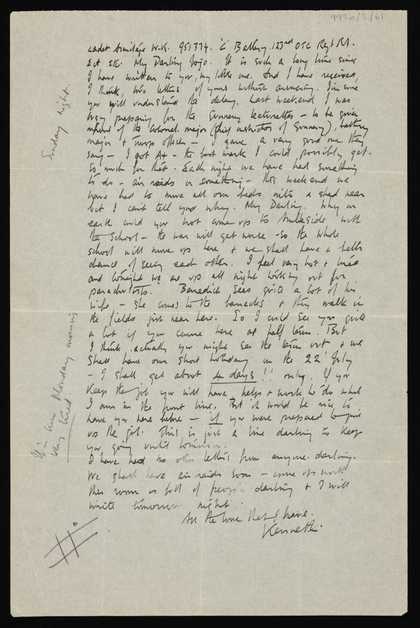 Cadet Armitage W.K. 951374. 'C' Battery, 123rd OTC Regt RA.
My Darling Jojo. It is such a long time since
I have written to you, my little one. And I have received,
I think, two letters of yours without answering. I'm sure
you will understand the delay. Last weekend I was
busy preparing for the Gunnery lecturettes – to be given
in front of the Colonel, major (chief instructor of Gunnery), battery
major & troop officer – I gave a very good one they
say – I got A+ – the best mark I could possibly get.
So much for that. Each night we have had something
to do – air raids or something – this weekend we
have had to move all our beds into a shed near
but I can't tell you why. My Darling. Why on
earth will you not come up to Ambleside with
the School – the war will get worse – so the whole
school will move up here & we shall have a better
chance of seeing each other. I feel very hot & tired
and tonight we are up all night looking out for
parachutists. Benedick sees quite a lot of his
wife – she comes to the barracks & they walk in
the fields just near here. So I could see you quite
a lot if you came here at half term! But
I think, actually you might see the term out & we
shall have our short holiday on the 22nd July
– I shall get about 4 days!! only. If you
keep the job you will have to work to do while
I am in the front line. But it would be nice to
have you here alone – if you were prepared to give
up the job. This is just a line darling to keep
you going until tomorrow.
I have had no other letters from anyone darling.
We shall have air raids soon –
This room is full of people darling & I will
write tomorrow night.
All the love that I have.
Kenneth.
Sunday night.
I'm now Monday morning
very tired